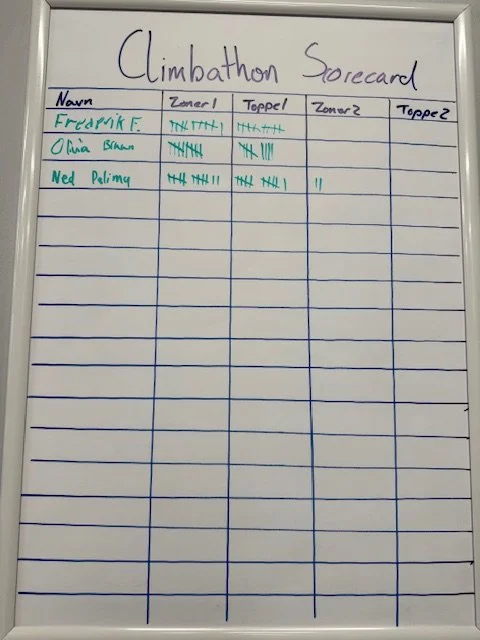 Climbathon Scorecard
Navn Zoner 1 Toppe 1 Zoner 2 Toppe 2
Frederik F.
Olivia
Ned